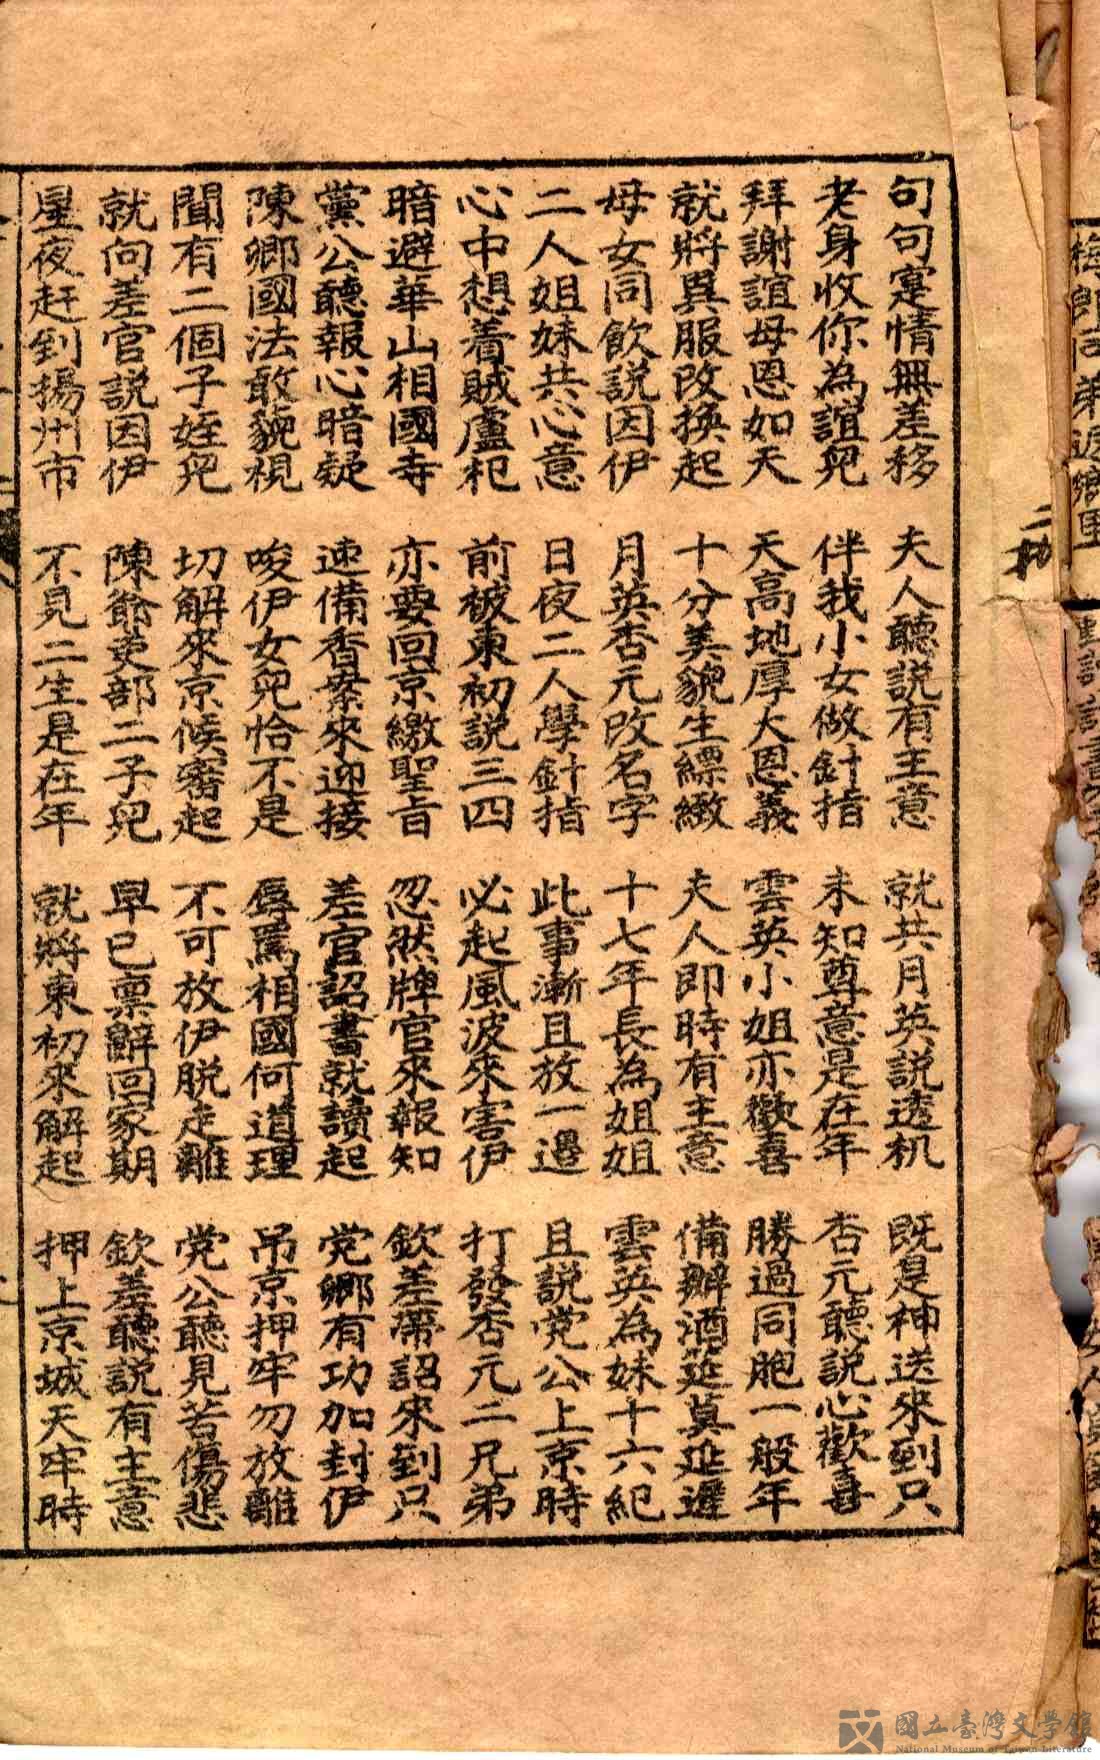 句句寔情無差移　夫人聽説有主意　就共月英説透机　既是神送來到只
老身收你為誼兒　伴我小女做針指　未知尊意是在年　杏元聽説心歡喜
拜謝誼母恩如天　天高地厚大恩義　雲英小姐亦歡喜　勝過同胞一般年
就將異服改換起　十分美貌生縹緻　夫人即時有主意　備辦酒莚莫延遲
母女同飲説因伊　月英杏元改名字　十七年長為姐姐　雲英為妹十六紀
二人姐妹共心意　日夜二人學針指　此事漸且放一邊　且説党公上京時
心中想着賊盧杞　前被東初説三四　必起風波來害伊　打發否元二兄弟
暗避華山相國寺　亦要回京繳聖旨　忽然牌官來報知　欽差帶詔來到只
黨公聽報心暗疑　速備香案來迎接　差官詔書就讀起　党卿有功加封伊
陳卿國法敢藐視　唆伊女兒恰不是　辱罵相國何道理　吊京押牢勿放離
聞有二個子姪兒　切解來京候審起　不可放伊脱走離　党公聽見苦傷悲
就向差官説因伊　陳爺吏部二子兒　早已禀辭回家期　欽差聽説有主意
星夜赶到揚州市　不見二生是在年　就將東初來解起　押上京城天牢時
國立臺灣文學館
National Museum of Taiwan Literature